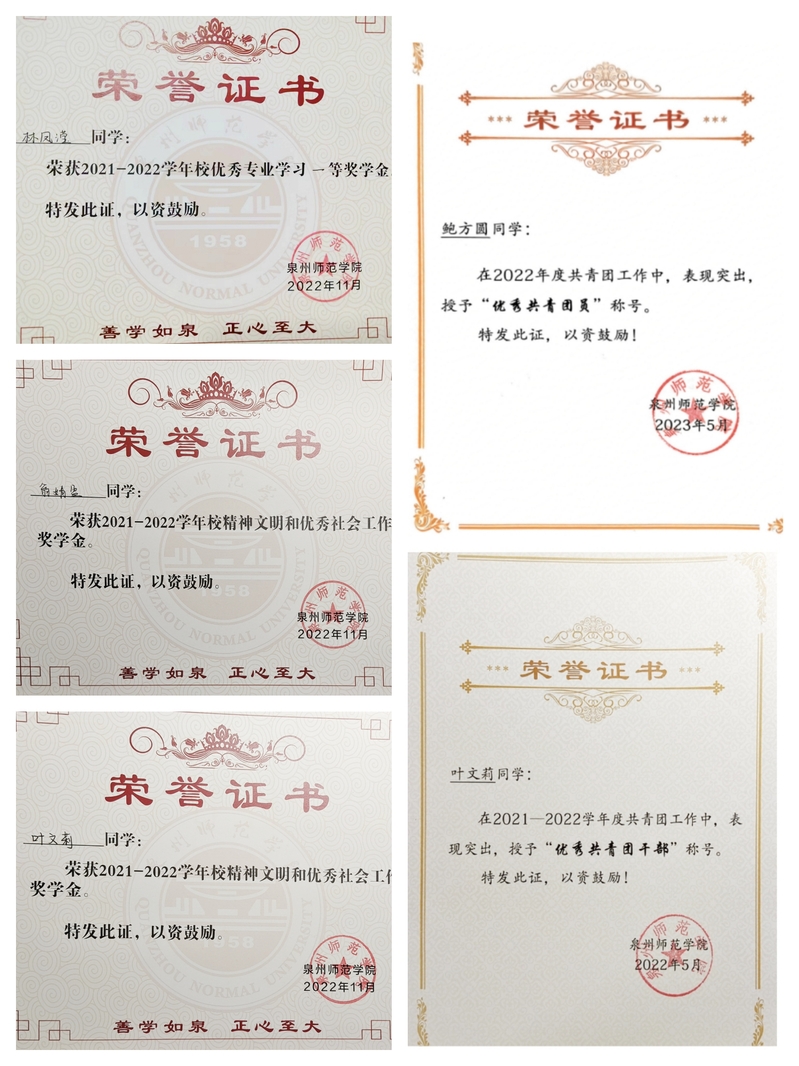 荣誉证书
林风滢 同学：
荣获2021-2022学年校优秀专业学习一等奖学金
特发此证，以资鼓励。
1958
QUANZHOU NORMAL UNIVERSITY
泉州师范学院
2022年11月
善学如泉 正心至大
荣誉证书
同学：
荣获2021-2022学年校精神文明和优秀社会工作
奖学金。
特发此证，以资鼓励。
1958
QUANZHOU NORMAL UNIVERSITY
泉州师范学院
2022年11月
善学如泉 正心至大
荣誉证书
叶文莉 同学：
荣获2021-2022学年校精神文明和优秀社会工作
奖学金。
特发此证，以资鼓励。
1958
QUANZHOU NORMAL UNIVERSITY
泉州师范学院
2022年11月
善学如泉 正心至大
荣誉证书
鲍方圆同学：
在2022年度共青团工作中，表现突出，
授予“优秀共青团员”称号。
特发此证，以资鼓励！
泉州师范学院
2023年5月
荣誉证书
叶文莉同学：
在2021—2022学年度共青团工作中，表
现突出，授予“优秀共青团干部”称号。
特发此证，以资鼓励！
泉州师范学院
2022年5月